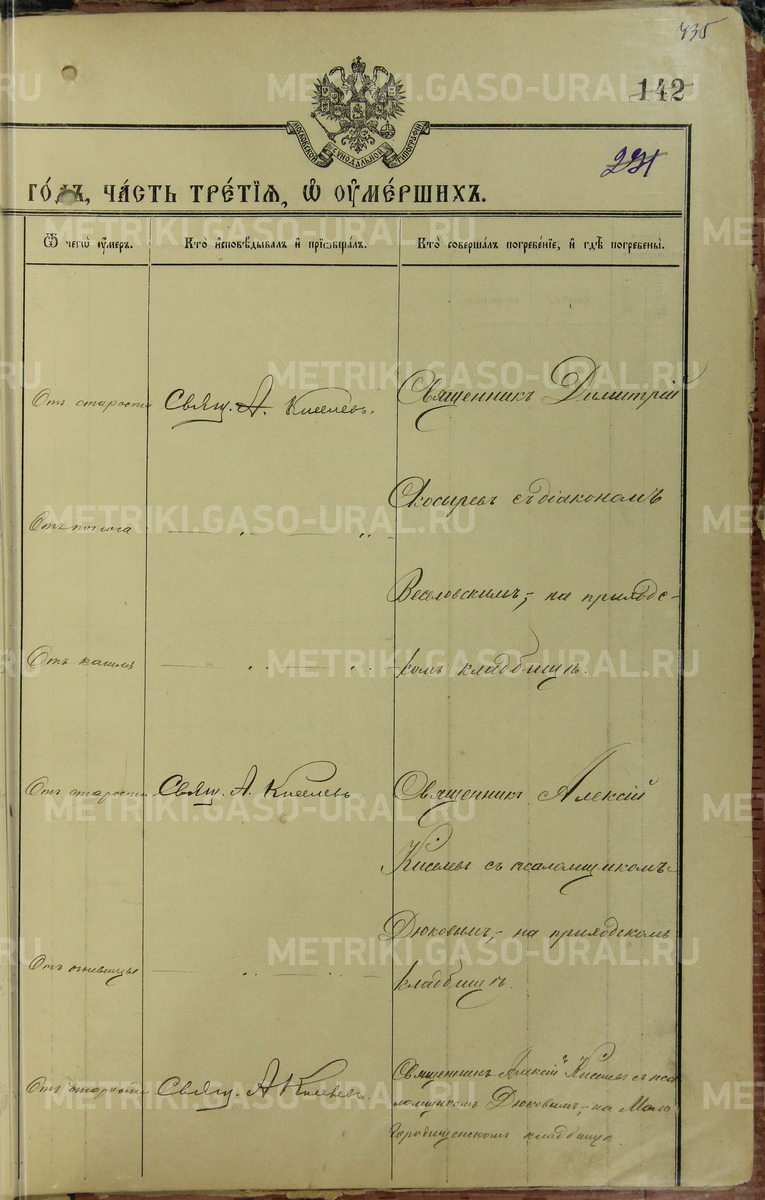 435
142
231
МОСКОВСКОЙ СѴНОДАЛЬНОЙ ТИПОГРАФІИ
ГО́ДЪ, ЧА́СТЬ ТРЕ́ТІѦ, Ѡ҆ ОУ҆МЕ́РШИХЪ.
Ѿ чегѡ̀ оу҆́меръ.
Кто̀ и҆сповѣ́дывалъ и҆ прїѡбща́лъ.
Кто̀ соверша́лъ погребе́нїе, и҆ гдѣ̀ погребены̀.
Отъ старости
Свящ. А. Киселевъ.
Священникъ Димитрій
Скосыревъ съ діакономъ
Отъ поноса
Веселовскимъ, на приходс-
Отъ кашля
комъ кладбищѣ.
Отъ старости
Свящ. А. Киселевъ
Священникъ Алексій
Киселевъ съ псаломщикомъ
Дюковымъ, на приходскомъ
Отъ огневицы
кладбищѣ.
Отъ старости
Свящ. А Киселевъ.
Священникъ Алексій Киселевъ съ пса
ломщикомъ Дюковымъ, на Мало
Городищенскомъ кладбищѣ
METRIKI.GASO-URAL.RU